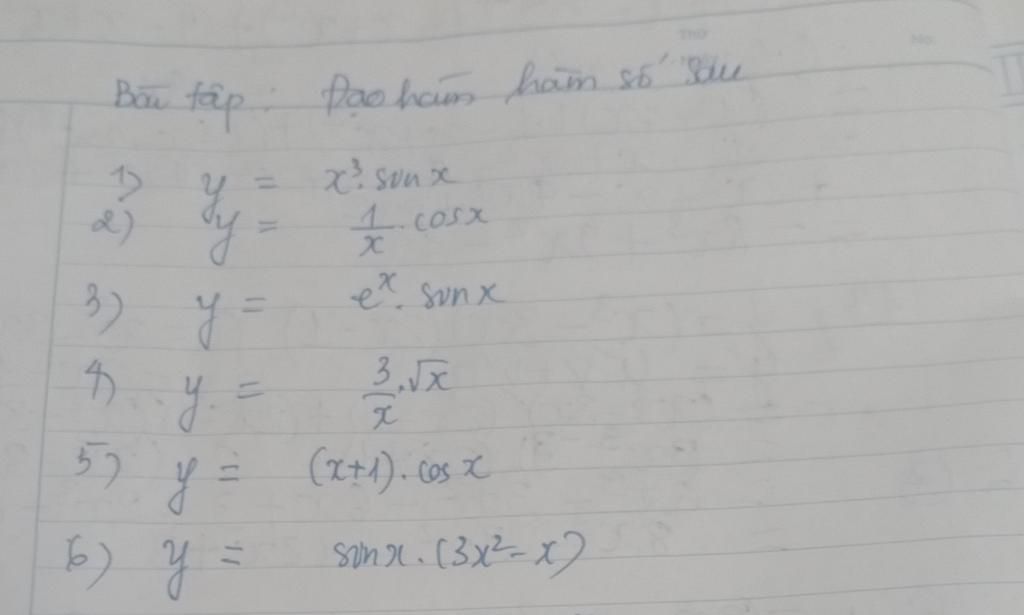 Thứ
No.
Bài tập: Đạo hàm hàm số sau
1) y = x³. sinx
2) y = 1/x . cosx
3) y = eˣ. sinx
4) y = 3/x . √x
5) y = (x+1). cos x
6) y = sinx. (3x² - x)